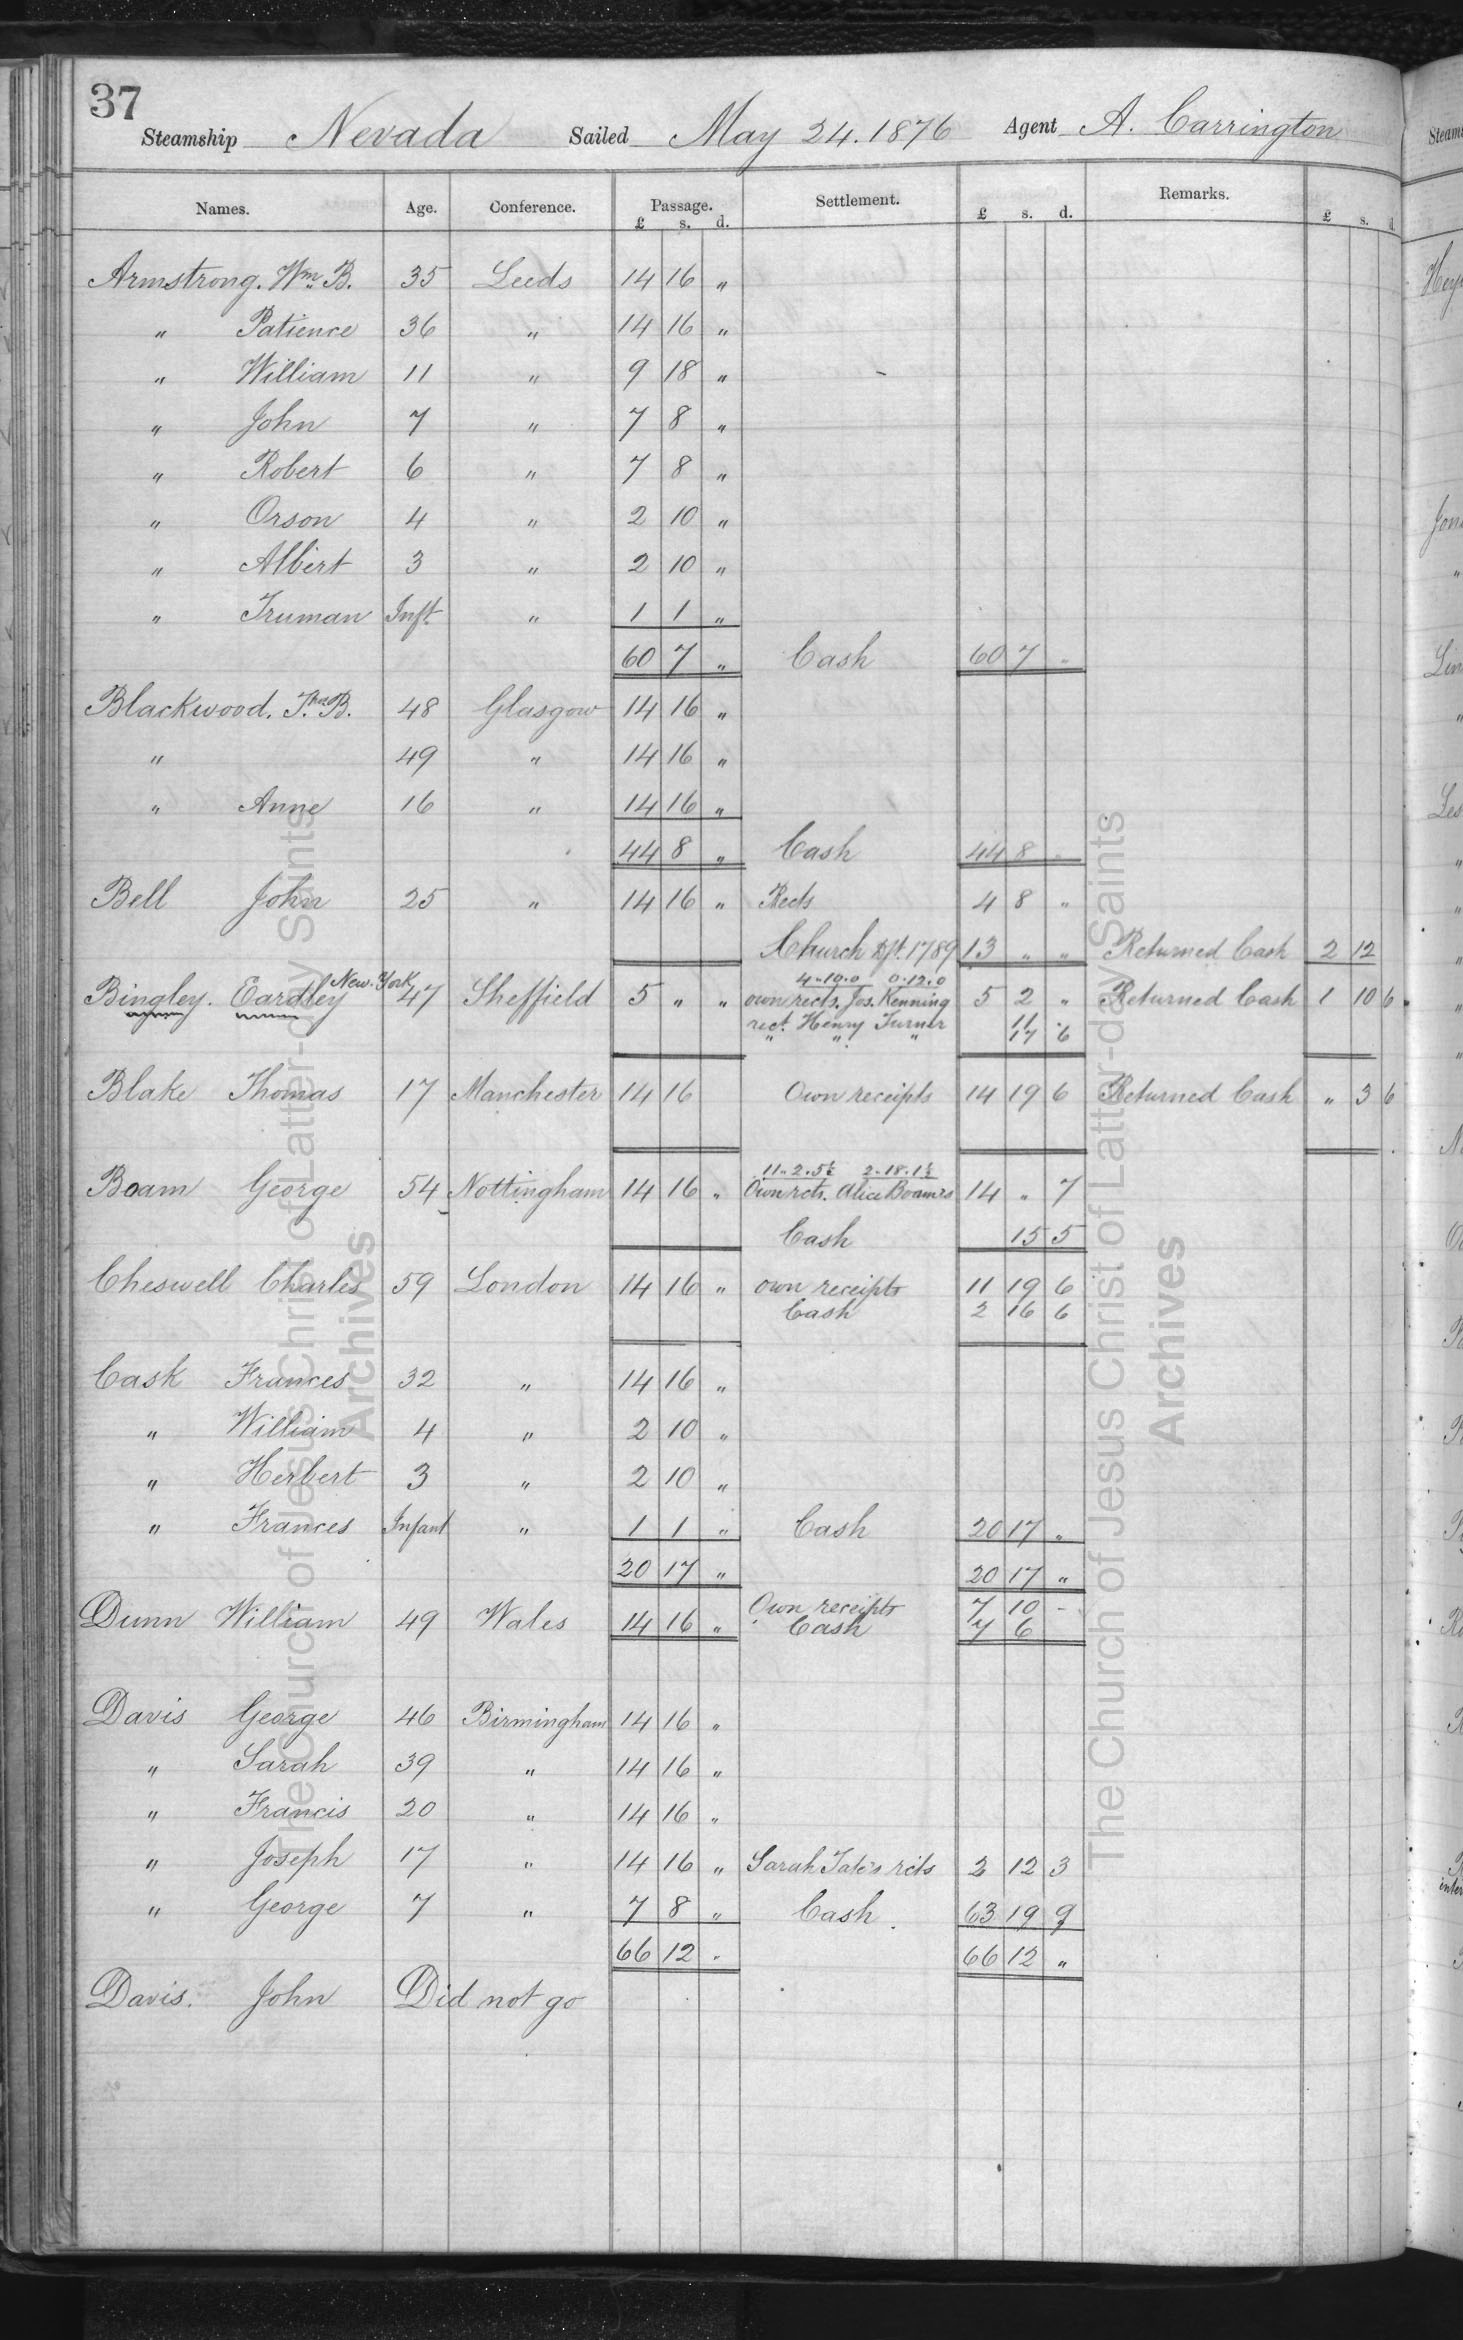 37
Steamship Nevada Sailed May 24. 1876 Agent A. Carrington
Names. Age. Conference. Passage. Settlement. £ s. d. Remarks. £ s. d.
£ s. d.
Armstrong. Wm B. 35 Leeds 14 16 "
" Patience 36 " 14 16 "
" William 11 " 9 18 "
" John 7 " 7 8 "
" Robert 6 " 7 8 "
" Orson 4 " 2 10 "
" Albert 3 " 2 10 "
" Truman Inft " 1 1 "
60 7 " Cash 60 7 "
Blackwood. Thos B. 48 Glasgow 14 16 "
" 49 " 14 16 "
" Anne 16 " 14 16 "
44 8 " Cash 44 8 "
Bell John 25 " 14 16 " Rects 4 8 "
Church Dft. 1789 13 " " Returned Cash 2 12
New York 4-10-0 0-12-0
Bingley. Eardley 47 Sheffield 5 " " own rects. Jos. Kenning 5 2 " Returned Cash 1 10 6
rect. Henry Turner 11
" " " 17 6
Blake Thomas 17 Manchester 14 16 Own receipts 14 19 6 Returned Cash " 3 6
11-2-5½ 2-18-1½
Boam George 54 Nottingham 14 16 " Own rcts. Alice Boam's 14 " 7
Cash 15 5
Cheswell Charles 59 London 14 16 " own receipts 11 19 6
Cash 2 16 6
Cask Frances 32 " 14 16 "
" William 4 " 2 10 "
" Herbert 3 " 2 10 "
" Frances Infant " 1 1 " Cash 20 17 "
20 17 " 20 17 "
Own receipts 7 10 -
Dunn William 49 Wales 14 16 " Cash 7 6
Davis George 46 Birmingham 14 16 "
" Sarah 39 " 14 16 "
" Francis 20 " 14 16 "
" Joseph 17 " 14 16 " Sarah Tate's rcts 2 12 3
" George 7 " 7 8 " Cash 63 19 9
66 12 " 66 12 "
Davis. John Did not go
The Church of Jesus Christ of Latter-day Saints
Archives
The Church of Jesus Christ of Latter-day Saints
Archives